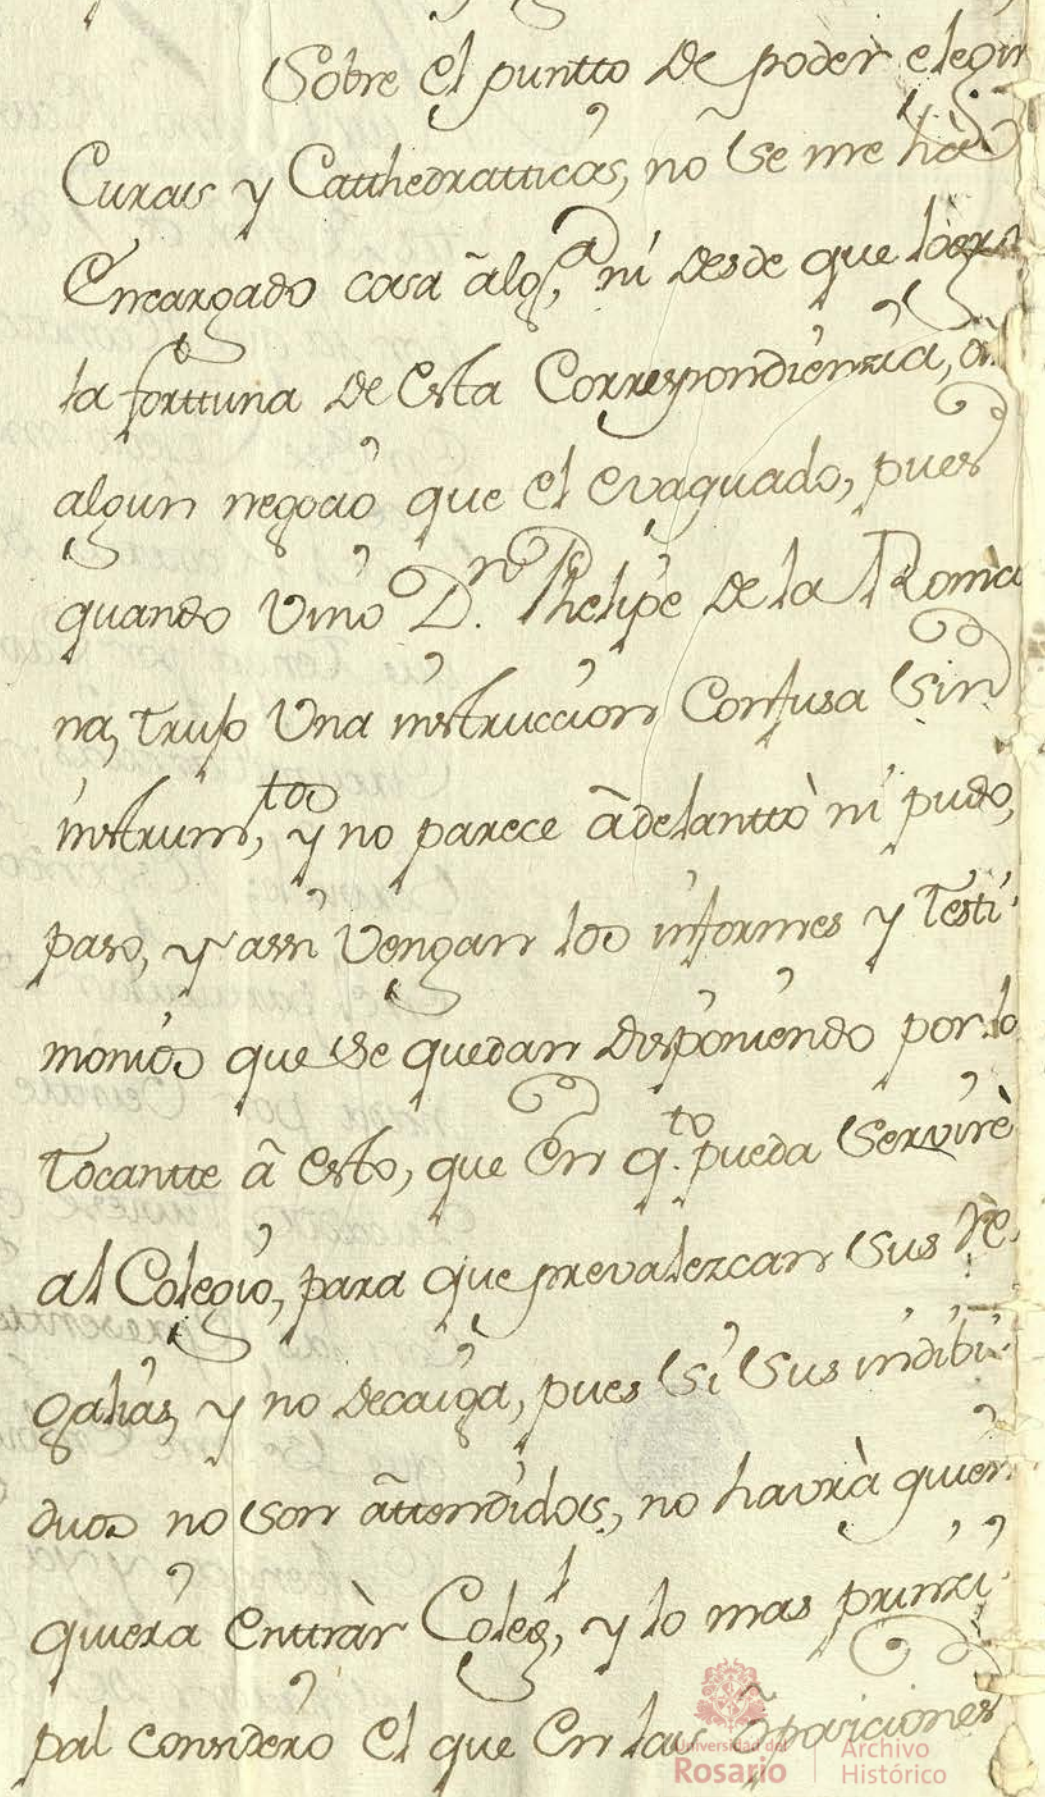 Sobre el puntto de poder elegir
Curas y Catthedratticas, no se me ha
Encargado cosa alg,ª ni desde que logro
la forttuna de esta Correspondienzia, a
algun negocio que el evaquado, pues
quando vino D.n Phelipe de la Roma
na, trujo una instruccion Confusa sin
instrum,tos y no parece adelanttò ni pudo,
paso, y assi vengan los informes y testi
monios que se quedan disponiendo por lo
tocantte â esto, que en q.to pueda servirè
al Colegio, para que prevalezcan sus re
galias, y no decaiga, pues si sus indibi
duos no son attendidos, no havrà quien
quiera enttràr Coleg,l y lo mas prinzi
pal considero el que en las oposiciones
Universidad del
Rosario
Archivo
Histórico